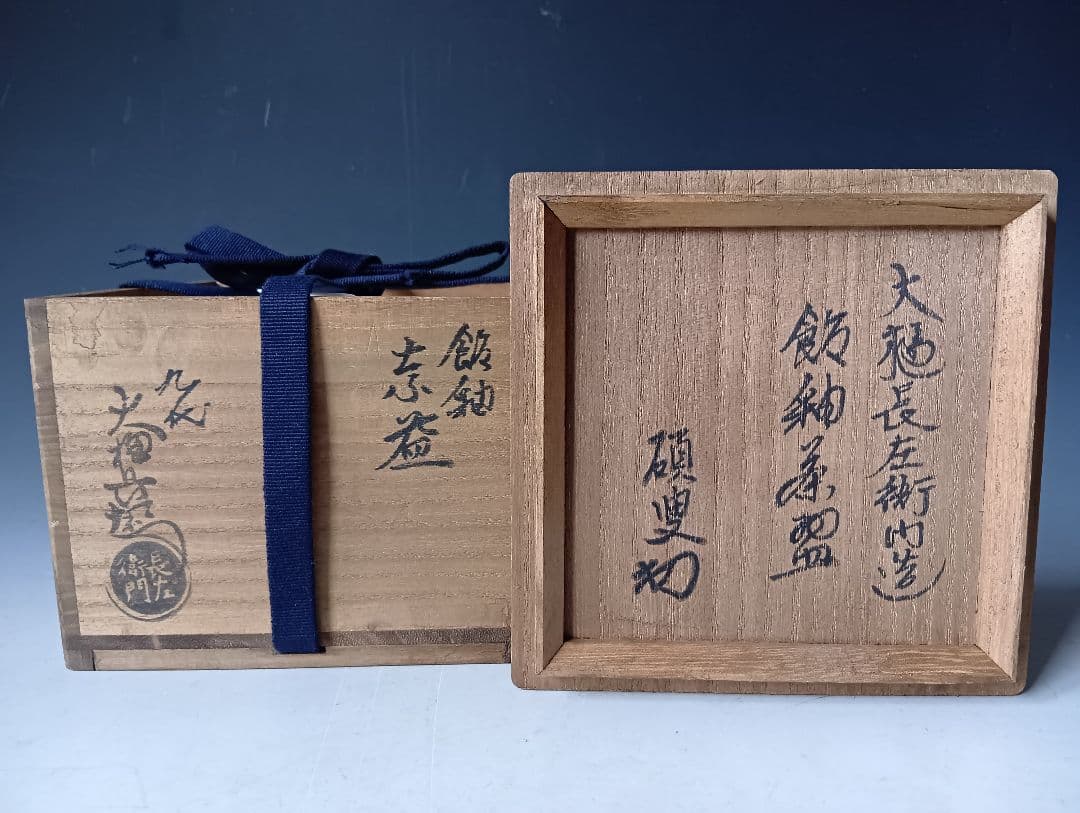 飴釉
茶盌
九代
大樋長左衛門
長左
衛門
大樋長左衛門造
飴釉茶盌
碩叟